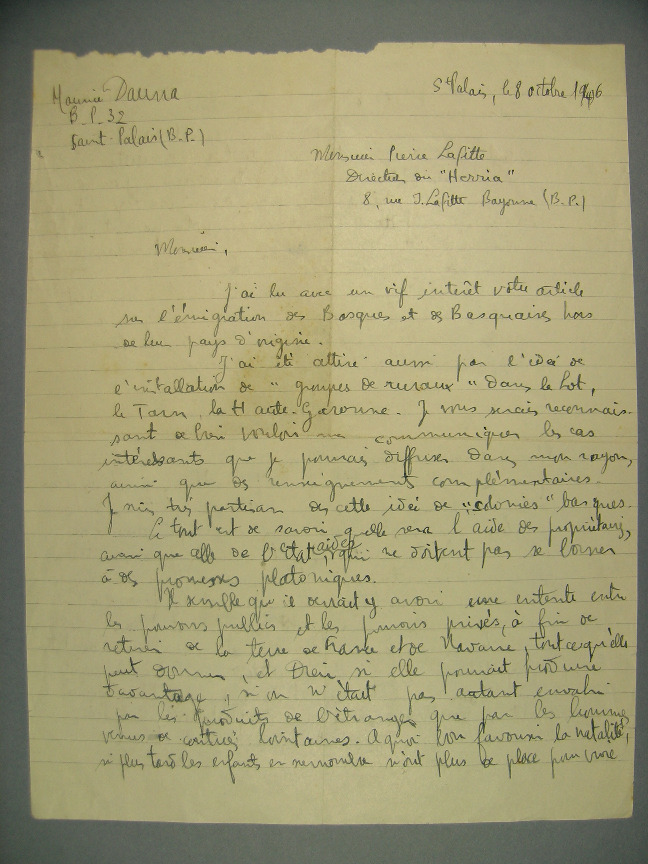 Maurice Dauna
B.P. 32
Saint-Palais (B.P.)
St Palais, le 8 octobre 1946
Monsieur Pierre Lafitte
Directeur du "Herria"
8, rue J. Lafitte Bayonne (B.P.)
Monsieur,
J'ai lu avec un vif intérêt votre article
sur l'émigration des Basques et des Basquaises hors
de leur pays d'origine.
J'ai été attiré aussi par l'idée de
l'installation de "groupes de ruraux" dans le Lot,
le Tarn, la Haute-Garonne. Je vous serais reconnais-
sant de bien vouloir me communiquer les cas
intéressants que je pourrais diffuser dans mon rayon,
ainsi que des renseignements complémentaires.
Je suis très partisan des cette idée de "colonies" basques.
Le tout est de savoir quelle sera l'aide des propriétaires,
ainsi que celle de l'Etat, aides qui ne doivent pas se borner
à des promesses platoniques.
Il semble qu'il devrait y avoir une entente entre
les pouvoirs publics et les pouvoirs privés, à fin de
retirer de la terre de France et de Navarre, tout ce qu'elle
peut donner, et Dieu si elle pourrait produire
davantage, si on n'était pas autant envahi
par les produits de l'étranger que par les hommes
venus de contrées lointaines. A quoi bon favoriser la natalité,
si plus tard les enfants en surnombre n'ont plus de place pour vivre